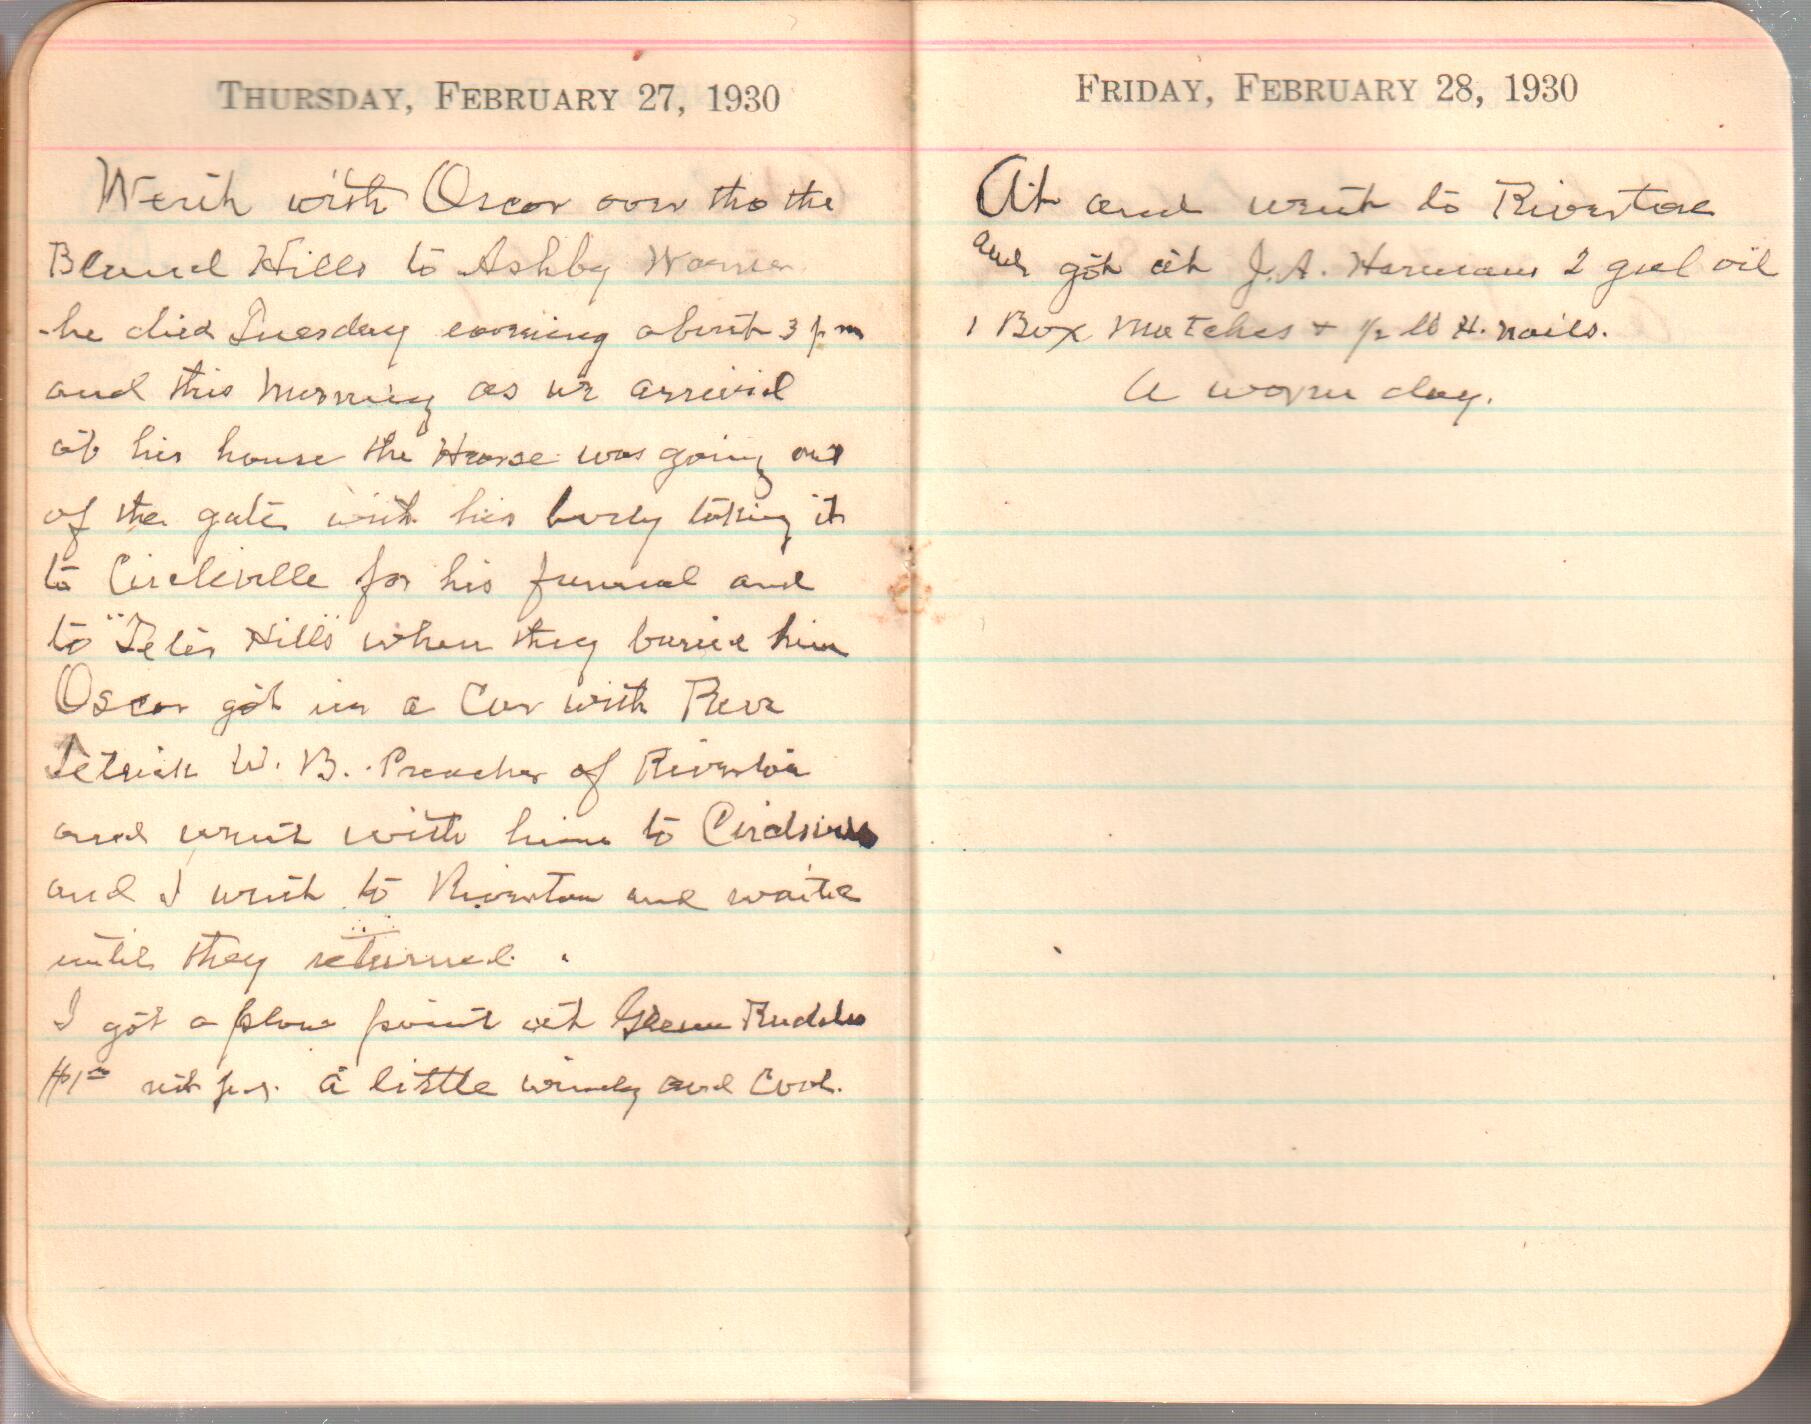 THURSDAY, FEBRUARY 27, 1930
Went with Oscar over tho the
Bland Hills to Ashby Warner
he died Tuesday evening about 3 pm
and this Morning as we arrivid
at his house the Hearse was going out
of the gate with his body taking it
to Circleville for his funeral and
to "Teter Hills" when they buried him
Oscar got in a Car with Rev
W. B. Preacher of Riverton
and went with him to
and I went to Riverton and waited
until they returned.
I got a plow point at Glenn Ruddles
$1 00 not pd. a little windy and Cool.
FRIDAY, FEBRUARY 28, 1930
At and went to Riverton
and got at J. A. Harmans 2 gal oil
1 Box Matches + 1/2 lb H. nails.
A warm day.